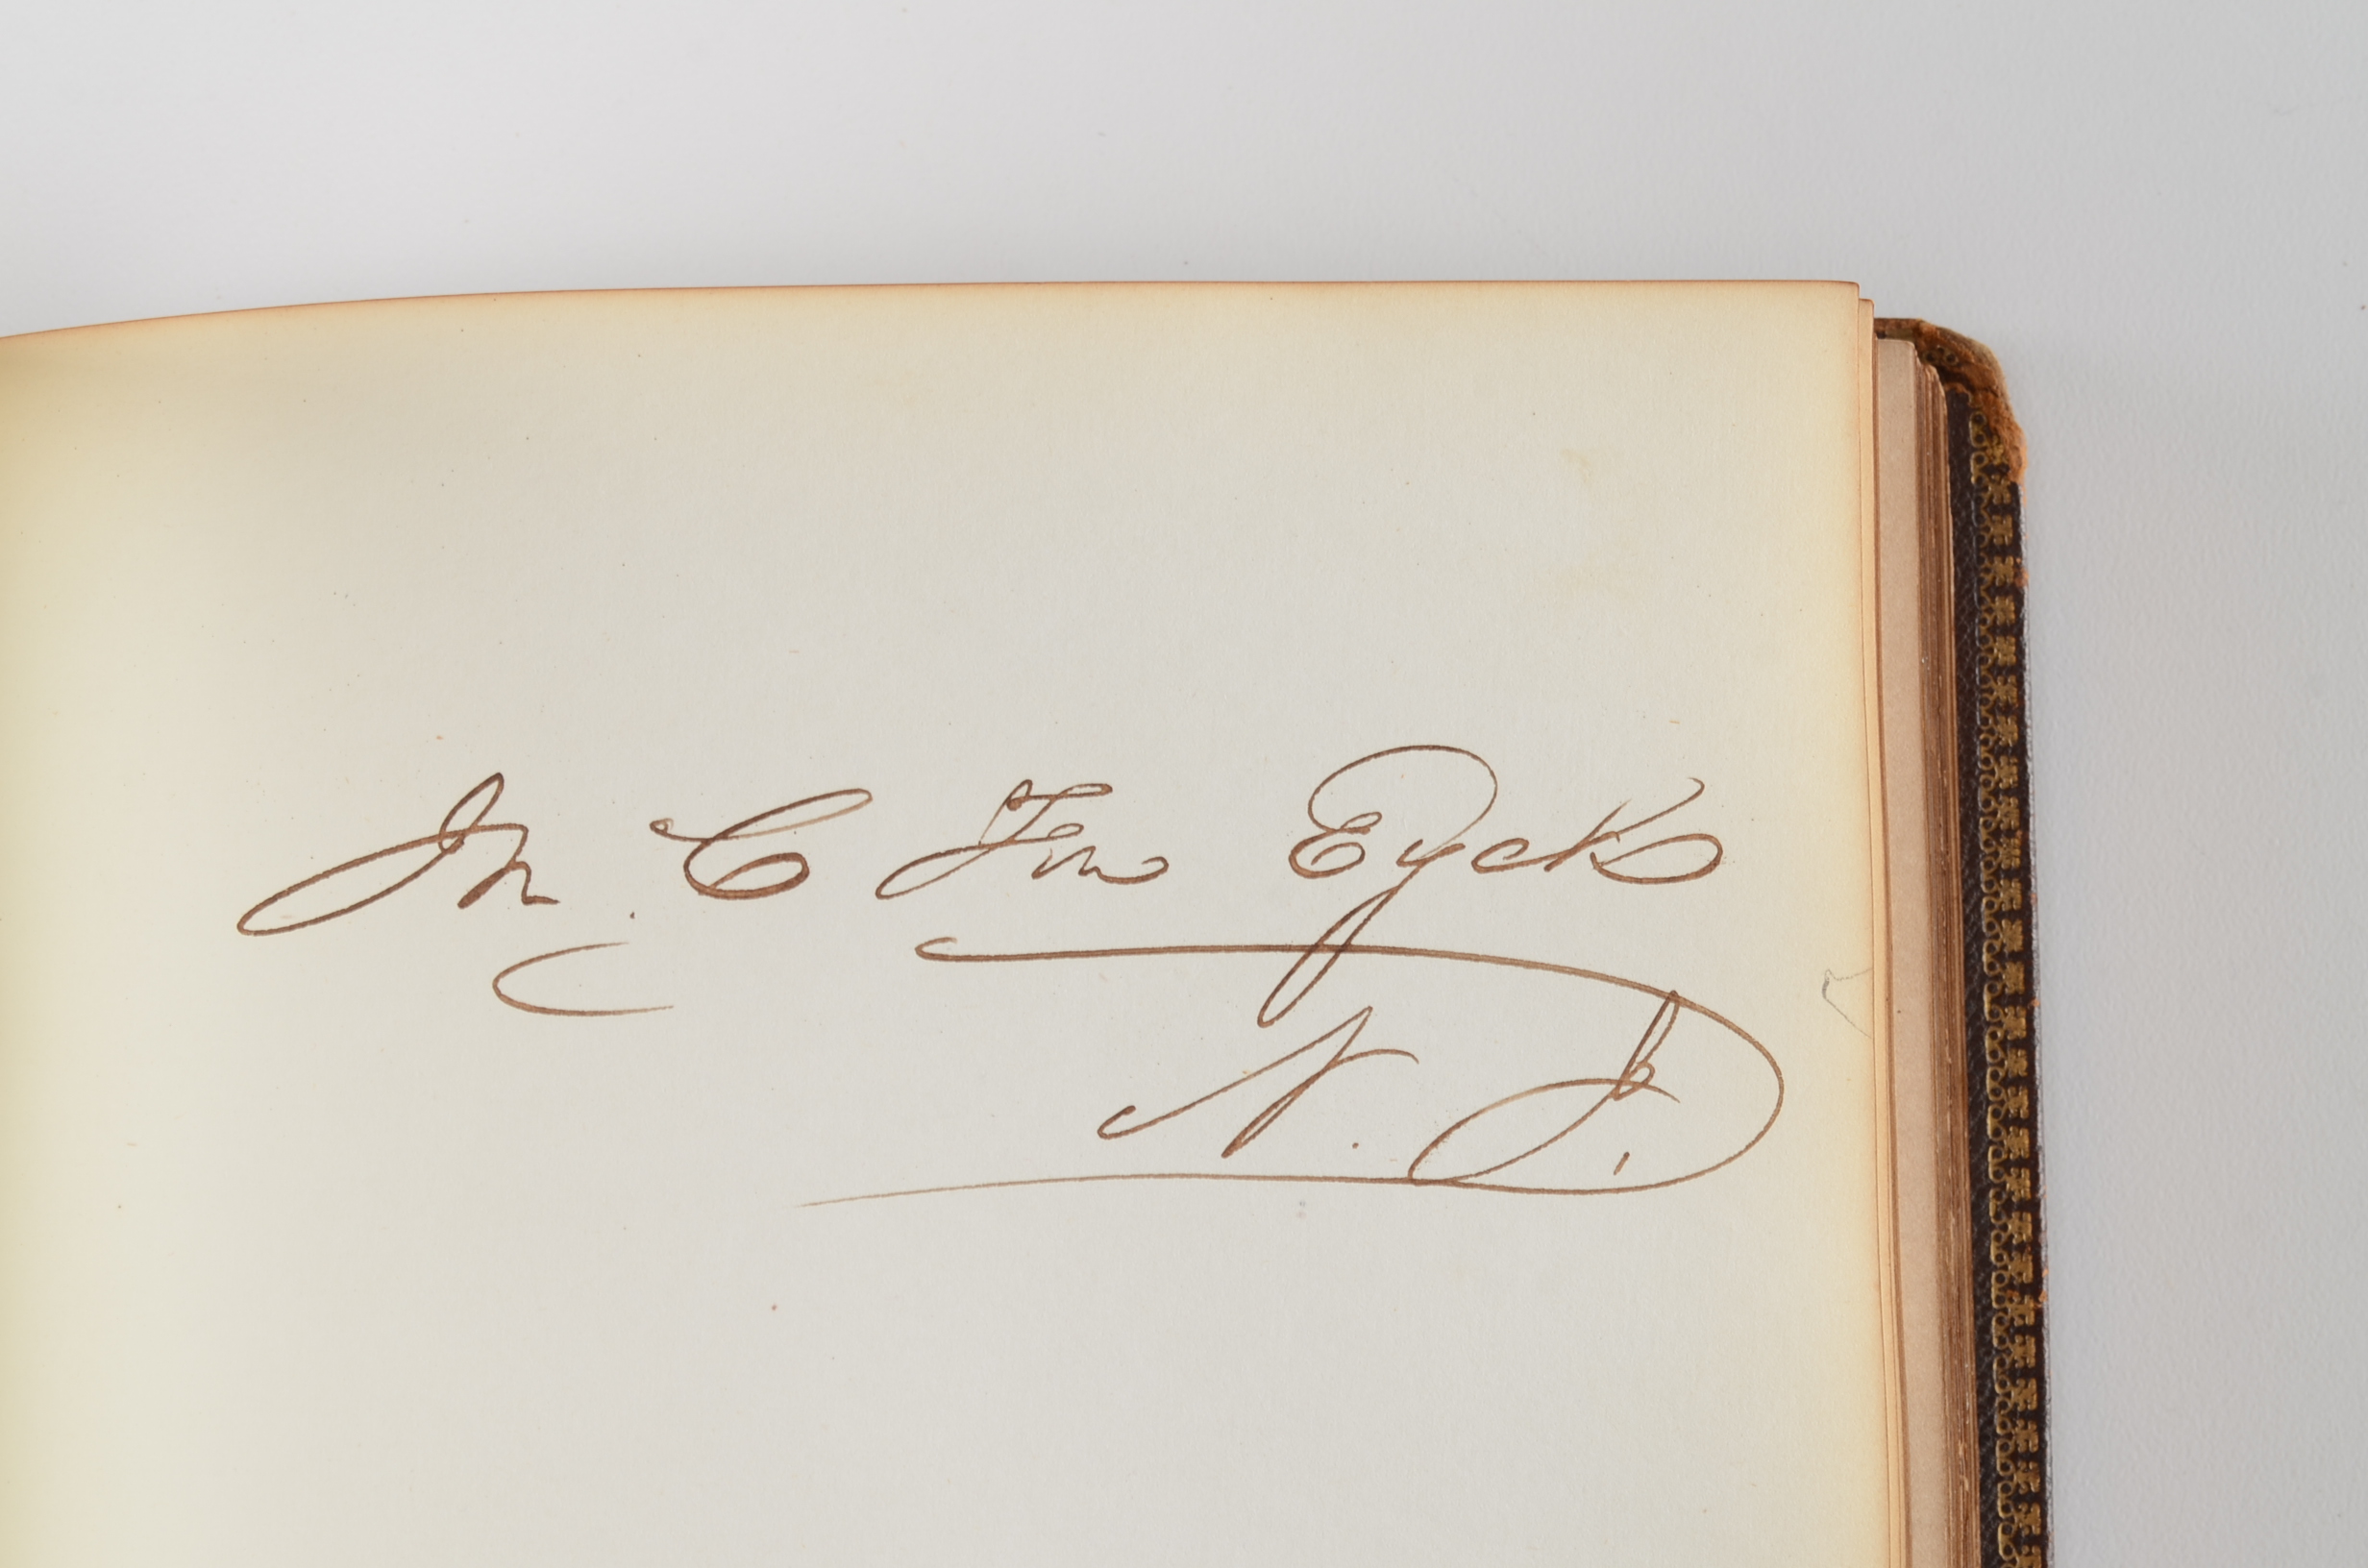 Jn. C Ten Eyck
N. J.